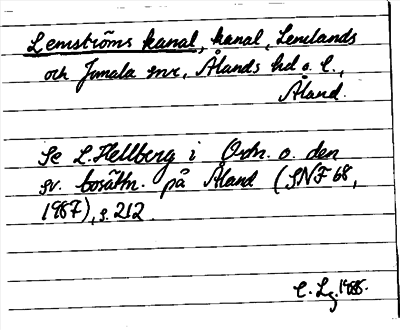 Lemströms kanal, kanal, Lemlands
och Jomala snr, Ålands hd o. l.,
Åland.
Se L. Hellberg i Ortn. o. den
sv. bosättn. på Åland (SNF 68,
1987), s. 212.
C. Lg. 1988.